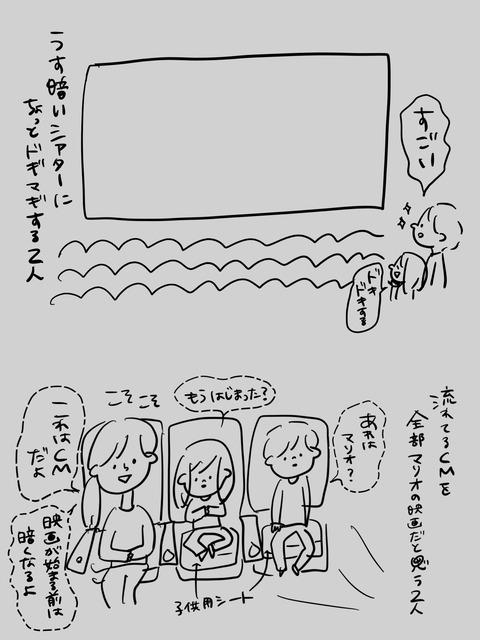 うす暗いシアターに
ちょっとドギマギする2人
すごい
ドキ
ドキする
流れてるCMを
全部マリオの映画だと思う2人
あれは
マリオ?
もうはじまった?
こそこそ
これはCM
だよ
映画が始まる前は
暗くなるよ
子供用シート